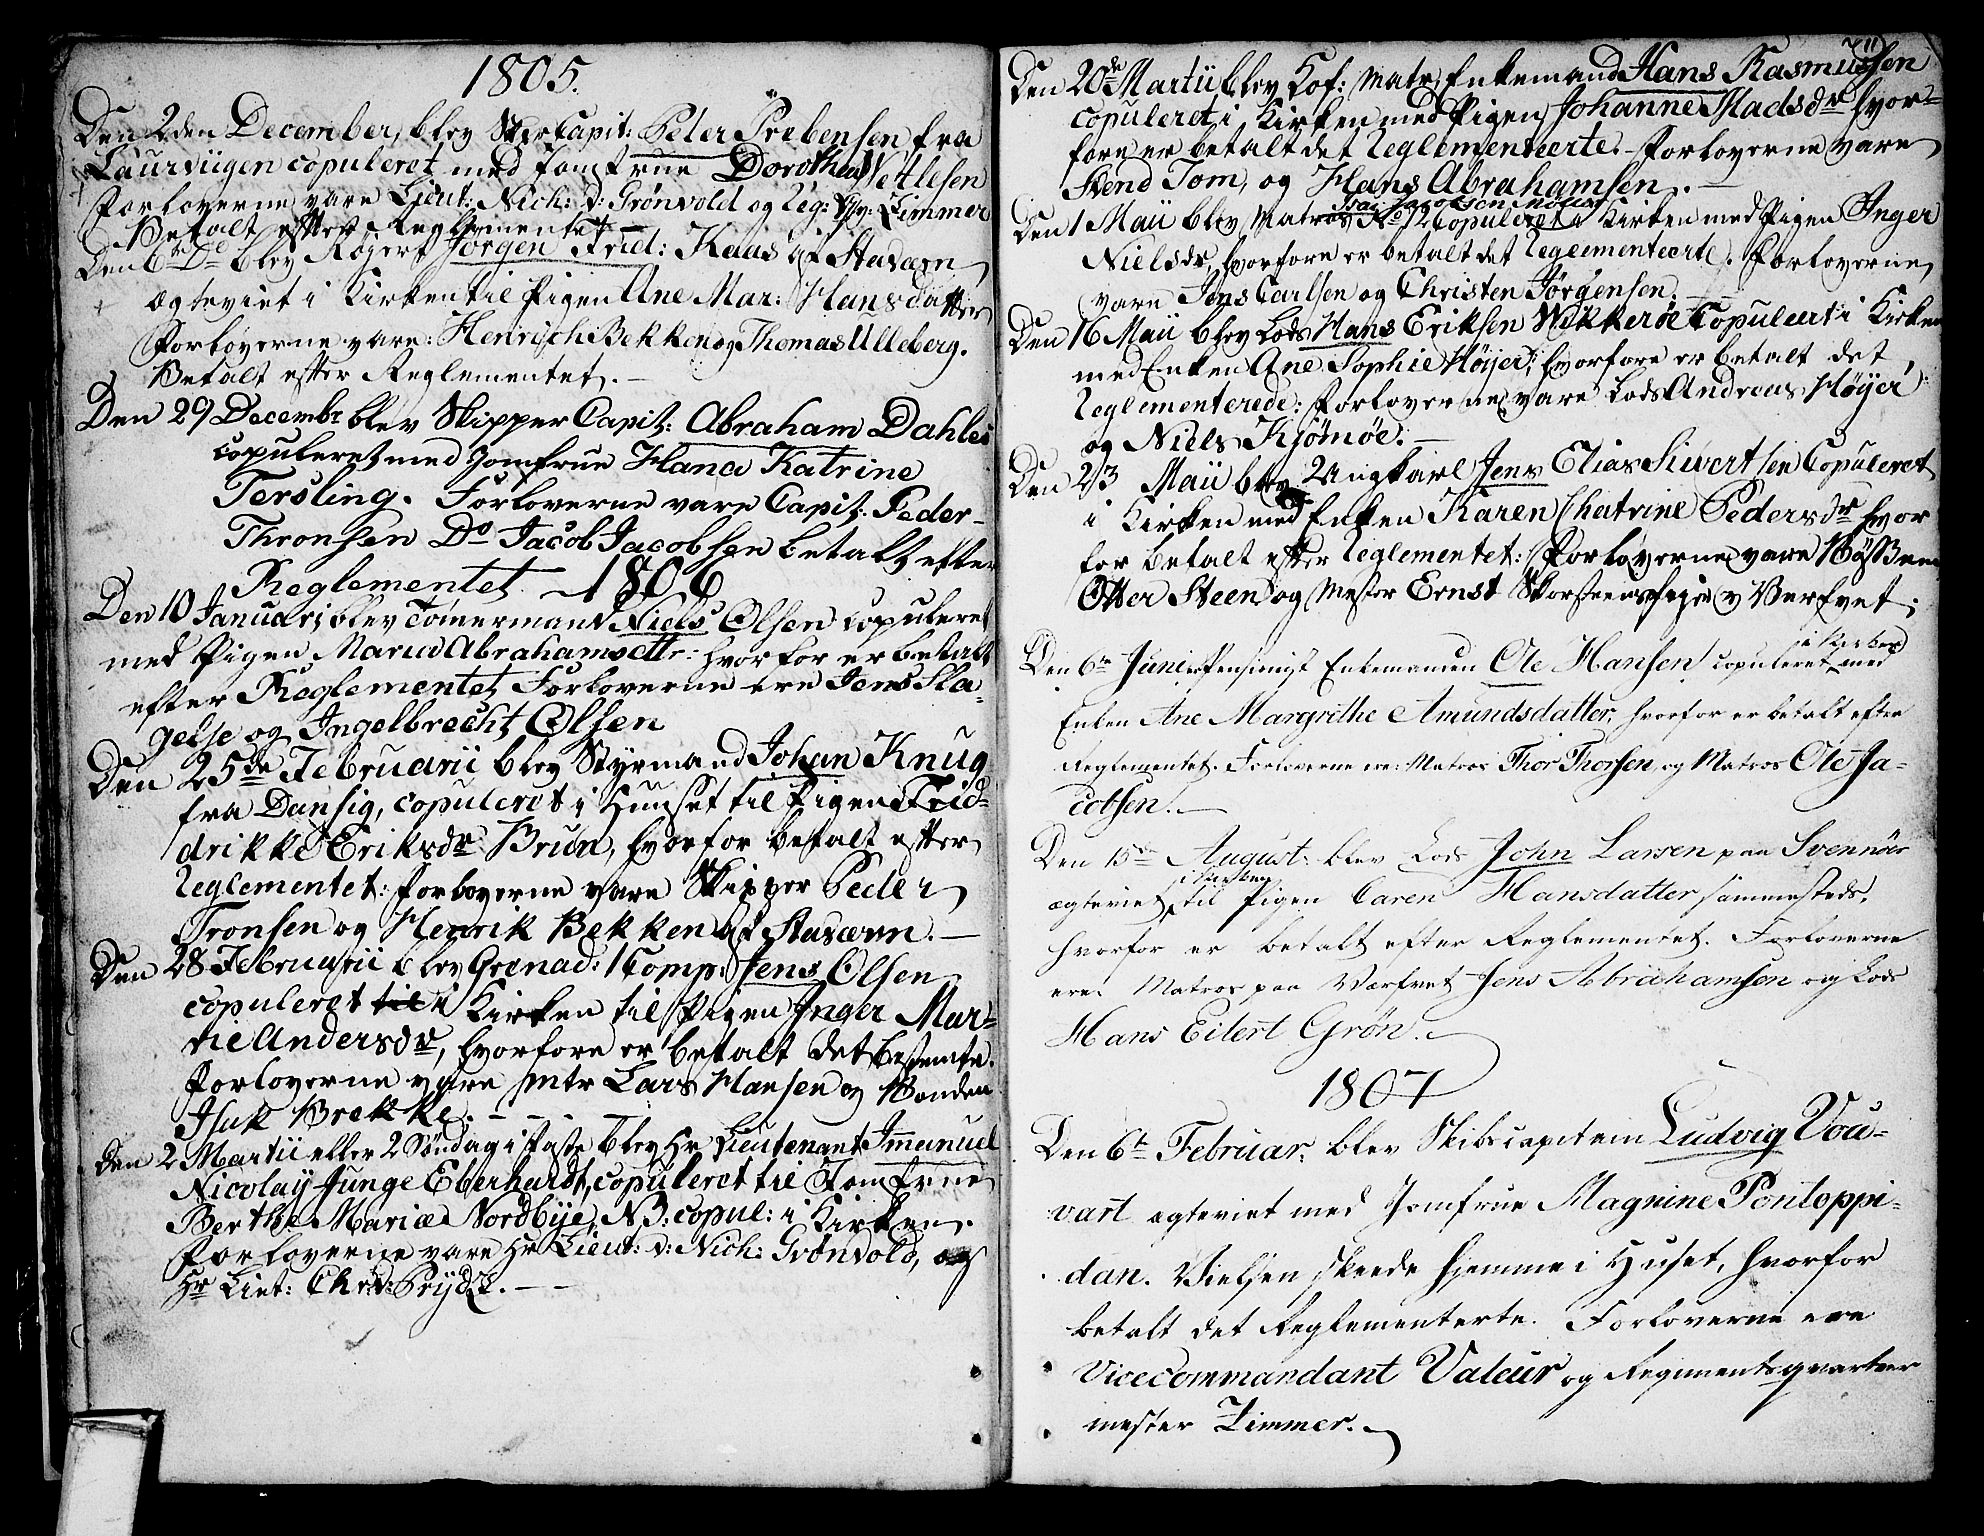 1805.
Den 2den December, blev SkibsCapit: Peter Prebensen fra
Laurviigen copuleret med Jomfrue Dorothea Wetlesen
Forloverne vare Lieut: Nich: d: Grönvold og Reg: Qv: Zimmer
Betalt efter Reglementet.
Den 6te Do blev Rojert Jörgen Frid: Kaas af Staværn
ægteviet i Kirken til Pigen Ane Mar: Hansdatter
Forloverne vare: Henrich Bekken og Thomas Ulleberg.
Betalt efter Reglementet. —
Den 29 Decembr blev Skipper Capit: Abraham Dahles
copuleret med Jomfrue Hana Katrine
Tersling. Forloverne vare Capit: Peder
Thronsen Do Jacob Jacobsen betalt efter
Reglementet. — 1806
Den 10 Januari blev Tömermand Niels Olsen copuleret
med Pigen Maria Abrahamsdttr: hvorfor er betalt
efter Reglementet Forloverne ere Jens Sla-
gelse og Ingelbrecht Olsen
Den 25de Februarii blev Styrmand Johan Knug
fra Dansig, copuleret i Huuset til Pigen Frid-
drikke Eriksdr Brun, hvorfor betalt efter
Reglementet: Forloverne vare Skipper Peder
Tronsen og Henrik Bekken af Staværn. —
Den 28 Februarii blev Grenad: 1 Comp: Jens Olsen
copuleret til i Kirken til Pigen Inger Mar-
tie Andersdr, hvorfore er betalt det bestemte.
Forloverne vare Mtr Lars Hansen og Bonden
Isak Brekke. — — —
Den 2 Martii eller 2 Söndag i Faste blev Hr Lieutenant Immanuel
Nicolay Junge Eberhardt, copuleret til Jomfrue
Berthe Mariæ Nordbye, NB: copul: i Kirken.
Forloverne vare Hr Lieut: d: Nich: Grönvold, og
Hr Liet: Chrst: Prydz. — —
Den 20de Martii blev Hof: Matr: Enkemand Hans Rasmussen
copuleret i Kirken med Pigen Johanne Madsdr hvor-
fore er betalt det Reglementeerte. — Forloverne vare
Stend Tom, og Hans Abrahamsen. —
Isac Jacobsen
Den 1 Maii blev Matros No 72 Copuleret i Kirken med Pigen Inger
Nielsdr, hvorfore er betalt det Reglementeerte. Forloverne
vare Jens Carlsen og Christen Jörgensen.
Den 16 Maii blev Lods Hans Eriksen Wekkeröe Copuleert i Kirken
med Enken Ane Sophie Höyer; hvorfore er betalt det
Reglementerede: Forloverne vare Lods Andreas Höyer
og Niels Kjömöe. —
Den 23 Maii blev Ungkarl Jens Elias Siwertsen Copuleret
i Kirken med Enken Karen Chatrine Pedersdr hvor
for betalt efter Reglementet: Forloverne vare
Otter Steen og Mester Ernst Skorsteensfejer v Verfvet;
Den 6te Junii Pensionist Enkemanden Ole Hansen copuleret i Kirken med
Enken Ane Margrithe Amundsdatter, hvorfor er betalt efter
Reglementet. Forloverne ere: Matros Thor Thorsen, og Matros Ole Ja-
cobsen. —
Den 15de August: blev Lods John Larsen paa Svennöer
ægteviet i Kirken til Pigen Caren Hansdatter sammesteds.
hvorfor er betalt efter Reglementet. Forloverne
ere: Matros paa Værfvet Jens Abrahamsen og Lods
Hans Eilert Grön. —
1807
Den 6te Februar: blev Skibscapitein Ludvig Vou-
vart ægteviet med Jomfrue Magnine Pontoppi-
dan. Vielsen skeede hjemme i Huset, hvorfor
betalt det Reglementerte. Forloverne ere
Vicecommandant Valeur og Regimentsqvarteer
mester Zimmer. —